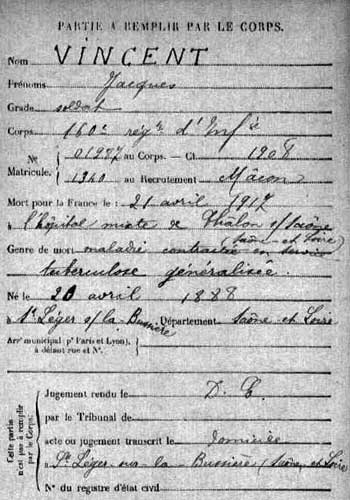 PARTIE A REMPLIR PAR LE CORPS.
Nom VINCENT
Prénoms Jacques
Grade soldat
Corps 160e régt d'Infie
No Matricule. 01977 au Corps. — Cl. 1908
1340 au Recrutement Mâcon
Mort pour la France le 21 avril 1917
à l'hôpital mixte de Châlon s/Saône
(Saône-et-Loire)
Genre de mort maladie contractée en service
tuberculose généralisée.
Né le 20 avril 1888
à St Léger s/la Bussière Département Saône et Loire
Arrt municipal (pr Paris et Lyon),
à défaut rue et No.
Cette partie n'est pas à remplir par le Corps.
Jugement rendu le D. C.
par le Tribunal de
acte ou jugement transcrit le domicile
à St Léger-sous-la-Bussière (Saône et Loire
No du registre d'état civil